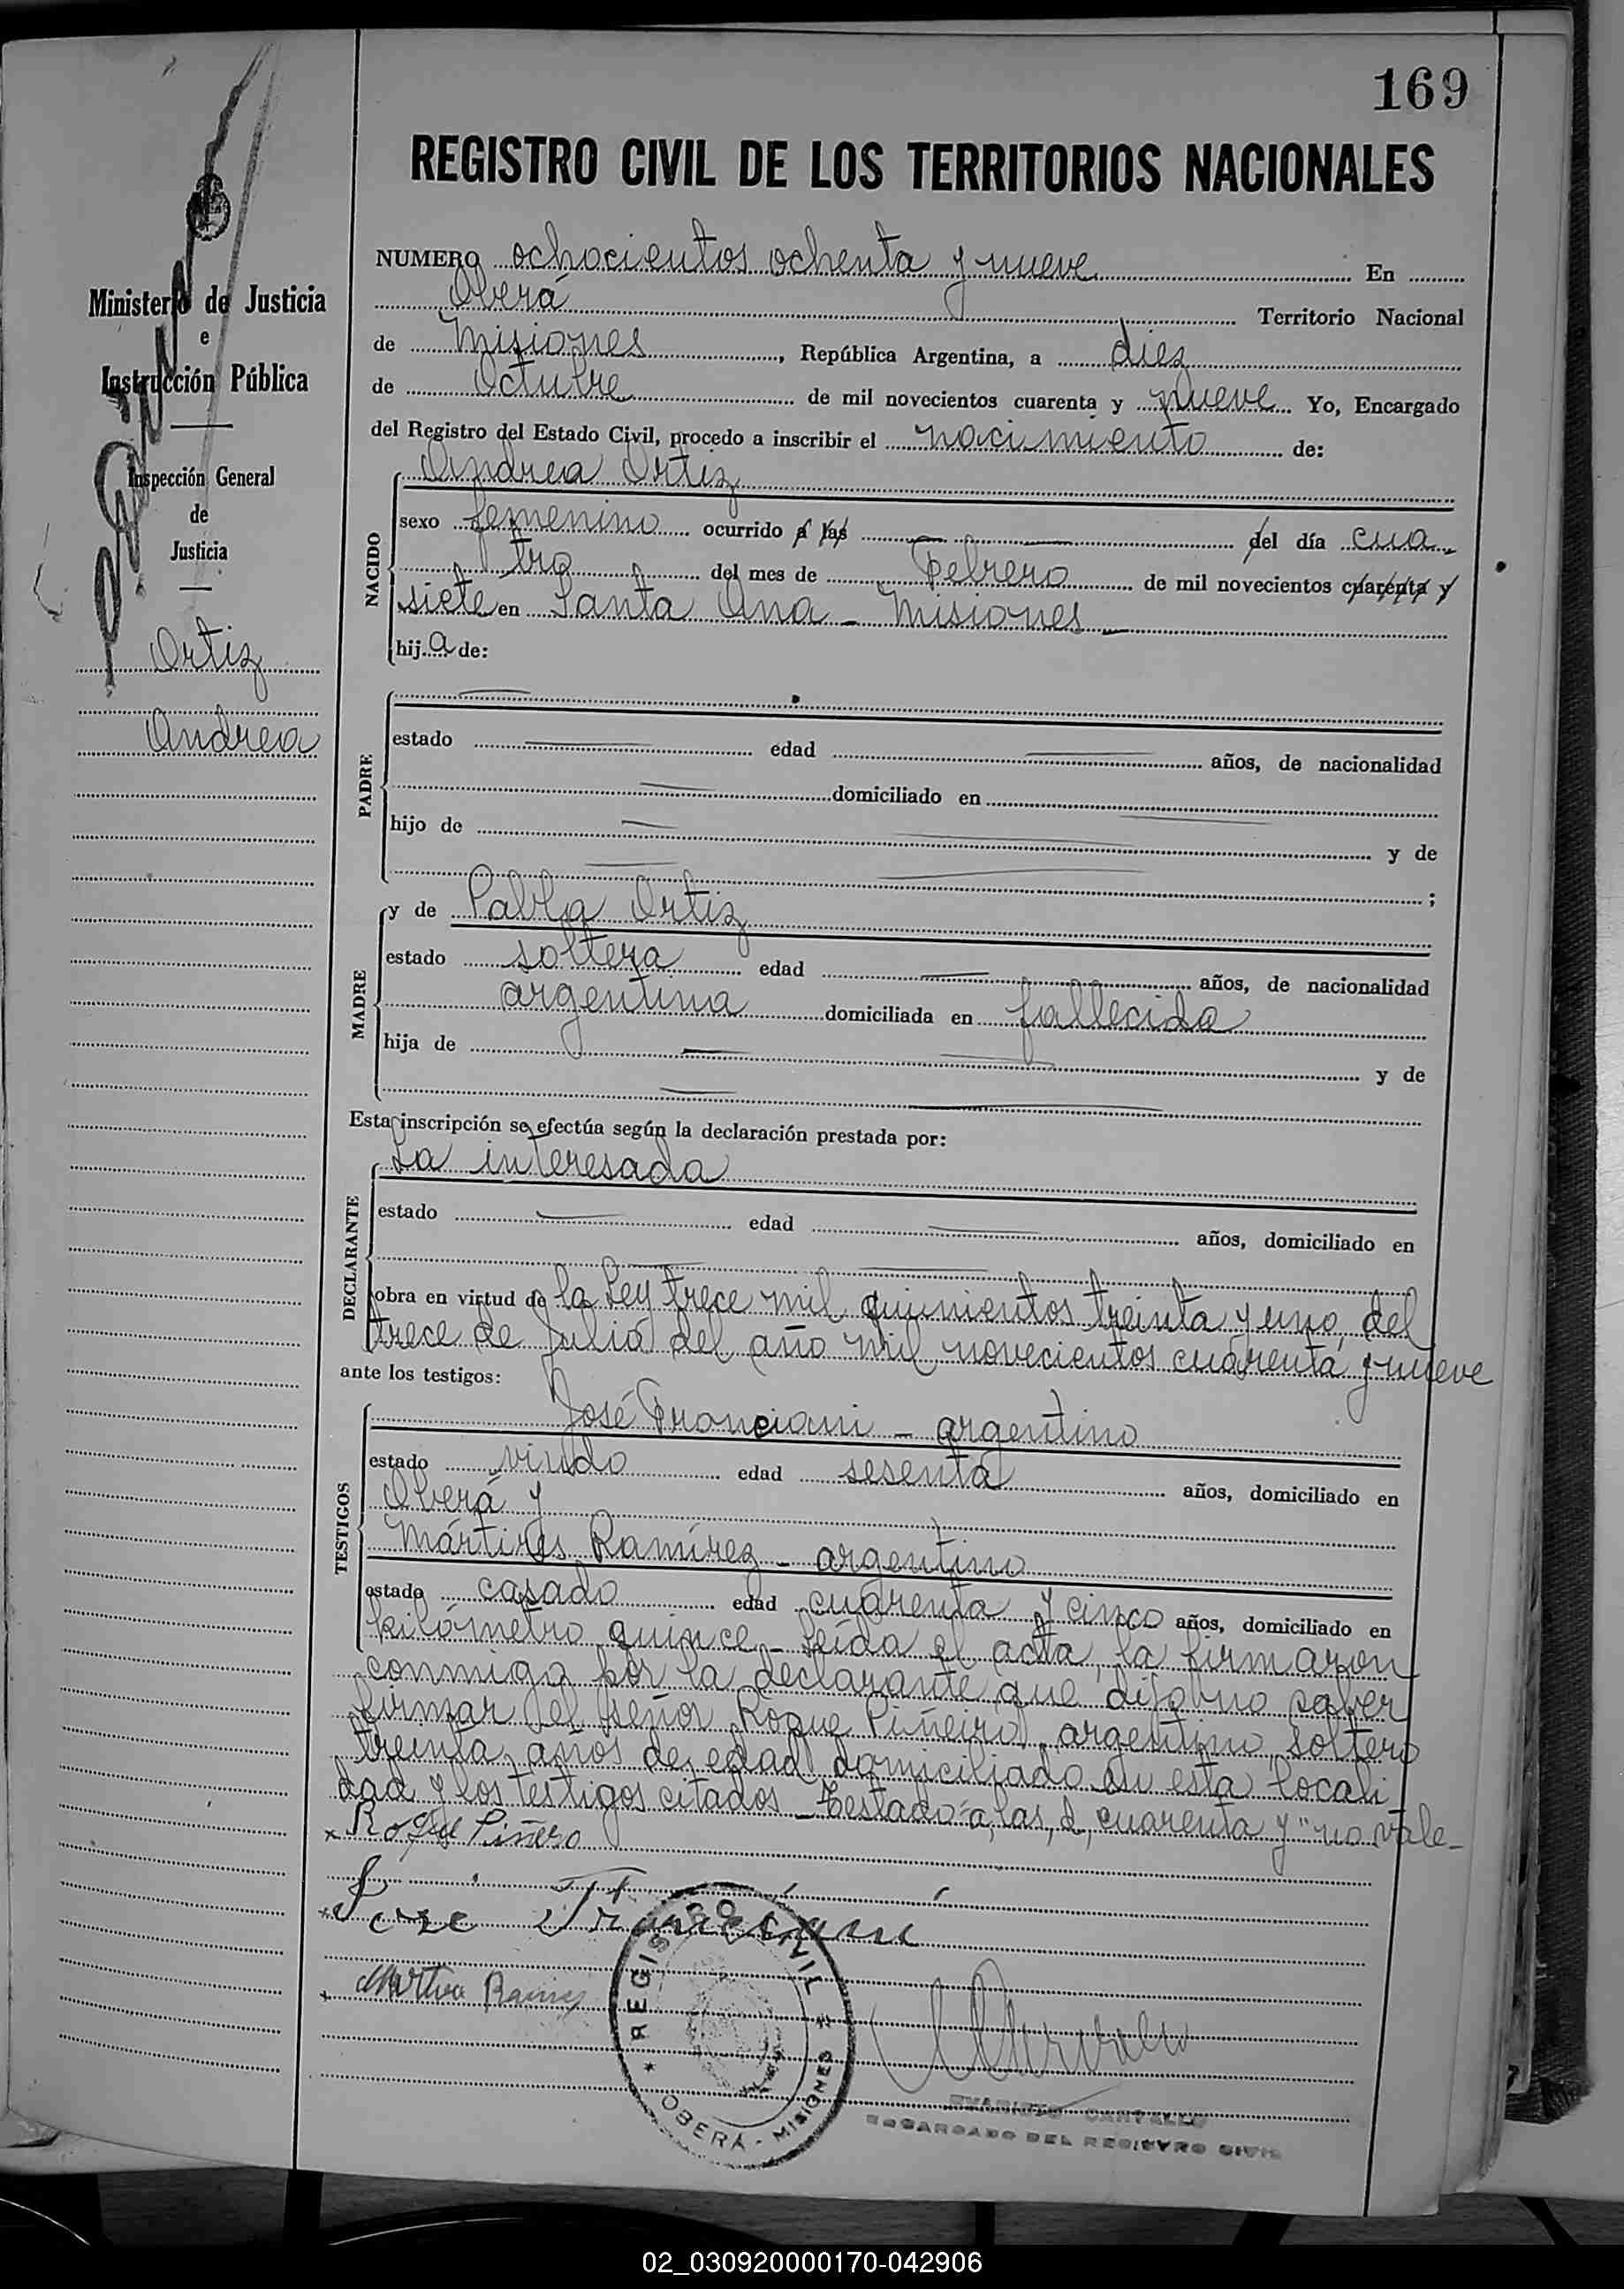 169
REGISTRO CIVIL DE LOS TERRITORIOS NACIONALES
Ministerio de Justicia
e
Instrucción Pública
Inspección General
de
Justicia
Ortiz
Andrea
NUMERO ochocientos ochenta y nueve En
Oberá Territorio Nacional
de Misiones, República Argentina, a diez
de Octubre de mil novecientos cuarenta y nueve Yo, Encargado
del Registro del Estado Civil, procedo a inscribir el nacimiento de:
NACIDO
Andrea Ortiz
sexo femenino ocurrido a las del día cua
tro del mes de Febrero de mil novecientos cuarenta y
siete en Santa Ana - Misiones -
hija de:
PADRE
estado edad años, de nacionalidad
domiciliado en
hijo de y de
;
MADRE
y de Pabla Ortiz
estado soltera edad años, de nacionalidad
argentina domiciliada en fallecida
hija de y de
Esta inscripción se efectúa según la declaración prestada por:
DECLARANTE
La interesada
estado edad años, domiciliado en
obra en virtud de la Ley trece mil quinientos treinta y uno, del
trece de Julio del año mil novecientos cuarenta y nueve
ante los testigos:
TESTIGOS
José Franciani - argentino
estado viudo edad sesenta años, domiciliado en
Oberá y
Mártires Ramírez - argentino
estado casado edad cuarenta y cinco años, domiciliado en
kilómetro quince - Leída el acta, la firmaron
conmigo por la declarante que dijo no saber
firmar el señor Roque Piñeiro, argentino, soltero
treinta años de edad domiciliado en esta locali
dad y los testigos citados - Testado "a, las, d, cuarenta y" no vale -
x Roque Piñero
x José Franciani
x
REGISTRO CIVIL
OBERÁ - MISIONES
ENCARGADO DEL REGISTRO CIVIL
02_030920000170-042906